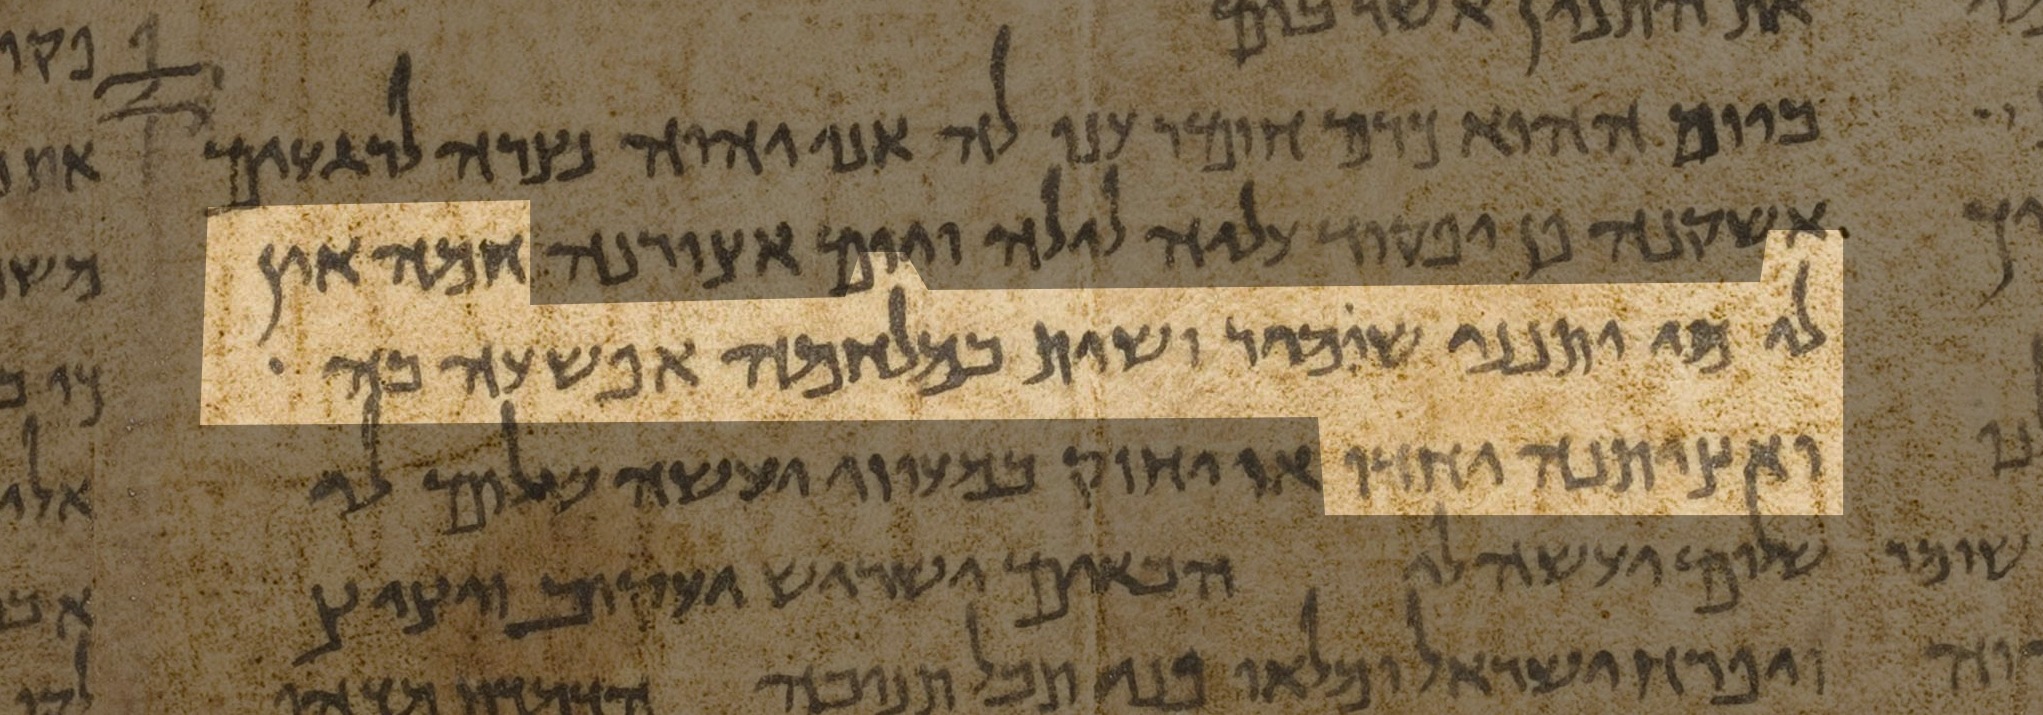 את התנין אשר בים
ביום ההוא כרם חומר ענו לה אני יהוה נצרה לרגעים
אשקנה פן יפקוד עליה לילה ויום אצורנה חמה אין
לי מי יתנני שומיר ושית במלחמה אפשעה בה
ואציתנה יחד או יחזק במעוזי יעשה שלום לי
שלום יעשה לי הבאים ישרוש יעקוב ויציץ
ויפרח ישראל ומלאו פני תבל תנובה